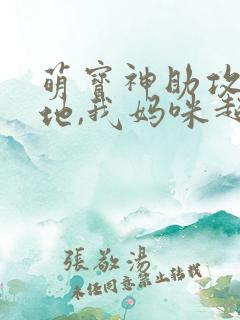 萌宝神助攻
地,我妈咪超
張敬湯
未经同意禁止转载